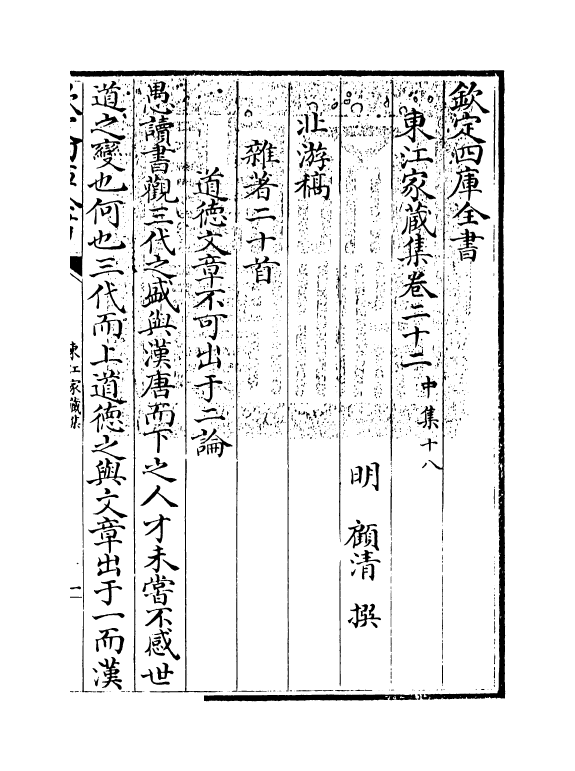 欽定四庫全書
東江家藏集卷二十二 中集十八
明 顧清 撰
北游稿
雜著二十首
道德文章不可出于二論
愚讀書觀三代之盛與漢唐而下之人才未嘗不感世
道之變也何也三代而上道德之與文章出于一而漢
東江家藏集
一